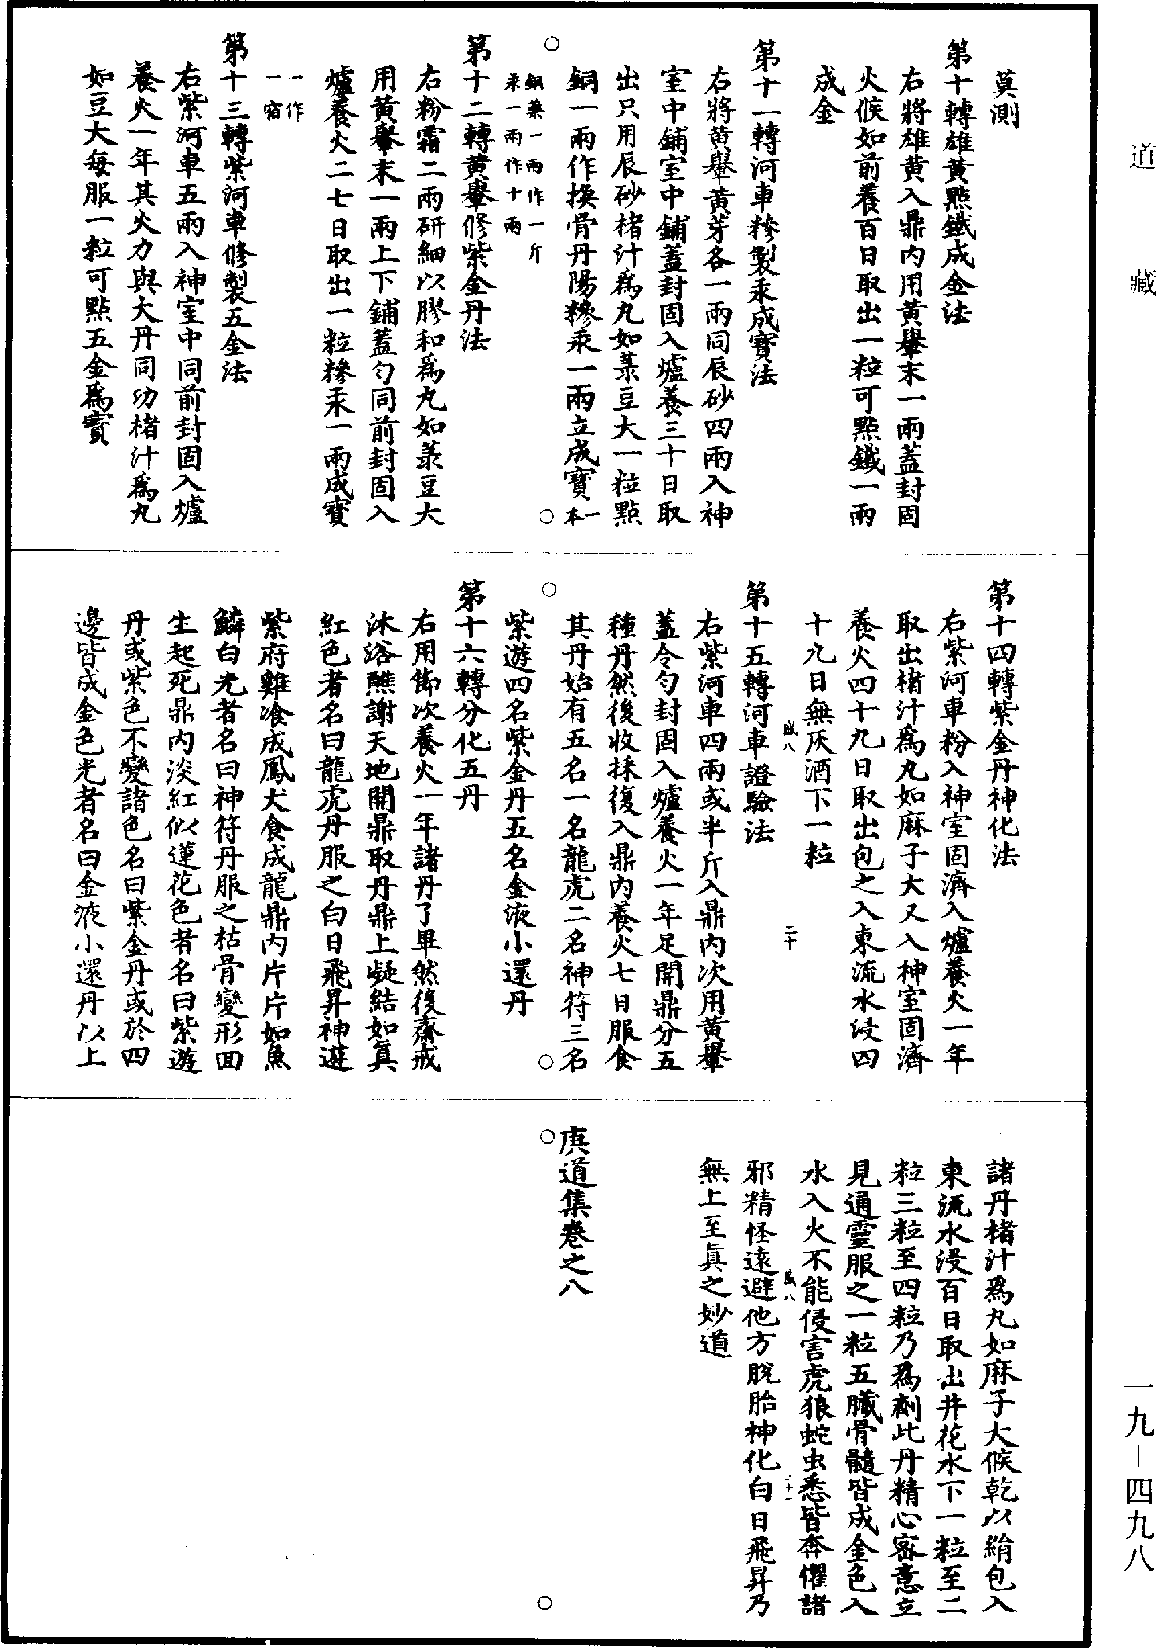 道藏
莫測
第十轉雄黃點鐵成金法
右將雄黃入鼎內用黃轝末一兩蓋封固
火候如前養百日取出一粒可點鐵一兩
成金
第十一轉河車糝製汞成寶法
右將黃轝黃芽各一兩同辰砂四兩入神
室中鋪室中鋪蓋封固入爐養三十日取
出只用辰砂楮汁為丸如菉豆大一粒點
銅一兩作換骨丹陽糝汞一兩立成寶一本
銅藥一兩作一斤
汞一兩作十兩
第十二轉黃轝修紫金丹法
右粉霜二兩研細以膠和為丸如菉豆大
用黃轝末一兩上下鋪蓋勻同前封固入
爐養火二七日取出一粒糝汞一兩成寶
一作
一宿
第十三轉紫河車修製五金法
右紫河車五兩入神室中同前封固入爐
養火一年其火力與大丹同功楮汁為丸
如豆大每服一粒可點五金為寶
第十四轉紫金丹神化法
右紫河車粉入神室固濟入爐養火一年
取出楮汁為丸如麻子大又入神室固濟
養火四十九日取出包之入東流水浸四
十九日無灰酒下一粒
咸八
二十
第十五轉河車證驗法
右紫河車四兩或半斤入鼎內次用黃轝
蓋令勻封固入爐養火一年足開鼎分五
種丹然後收採復入鼎內養火七日服食
其丹始有五名一名龍虎二名神符三名
紫遊四名紫金丹五名金液小還丹
第十六轉分化五丹
右用節次養火一年諸丹了畢然後齋戒
沐浴醮謝天地開鼎取丹鼎上凝結如真
紅色者名曰龍虎丹服之白日飛昇神遊
紫府雞飡成鳳犬食成龍鼎內片片如魚
鱗白光者名曰神符丹服之枯骨變形回
生起死鼎內淡紅似蓮花色者名曰紫遊
丹或紫色不變諸色名曰紫金丹或於四
邊皆成金色光者名曰金液小還丹以上
諸丹楮汁為丸如麻子大候乾以絹包入
東流水浸百日取出井花水下一粒至二
粒三粒至四粒乃為劑此丹精心密意立
見通靈服之一粒五臟骨髓皆成金色入
水入火不能侵害虎狼蛇虫悉皆奔懼諸
咸八
二十一
邪精怪遠避他方脫胎神化白日飛昇乃
無上至真之妙道
庚道集卷之八
一九－四九八